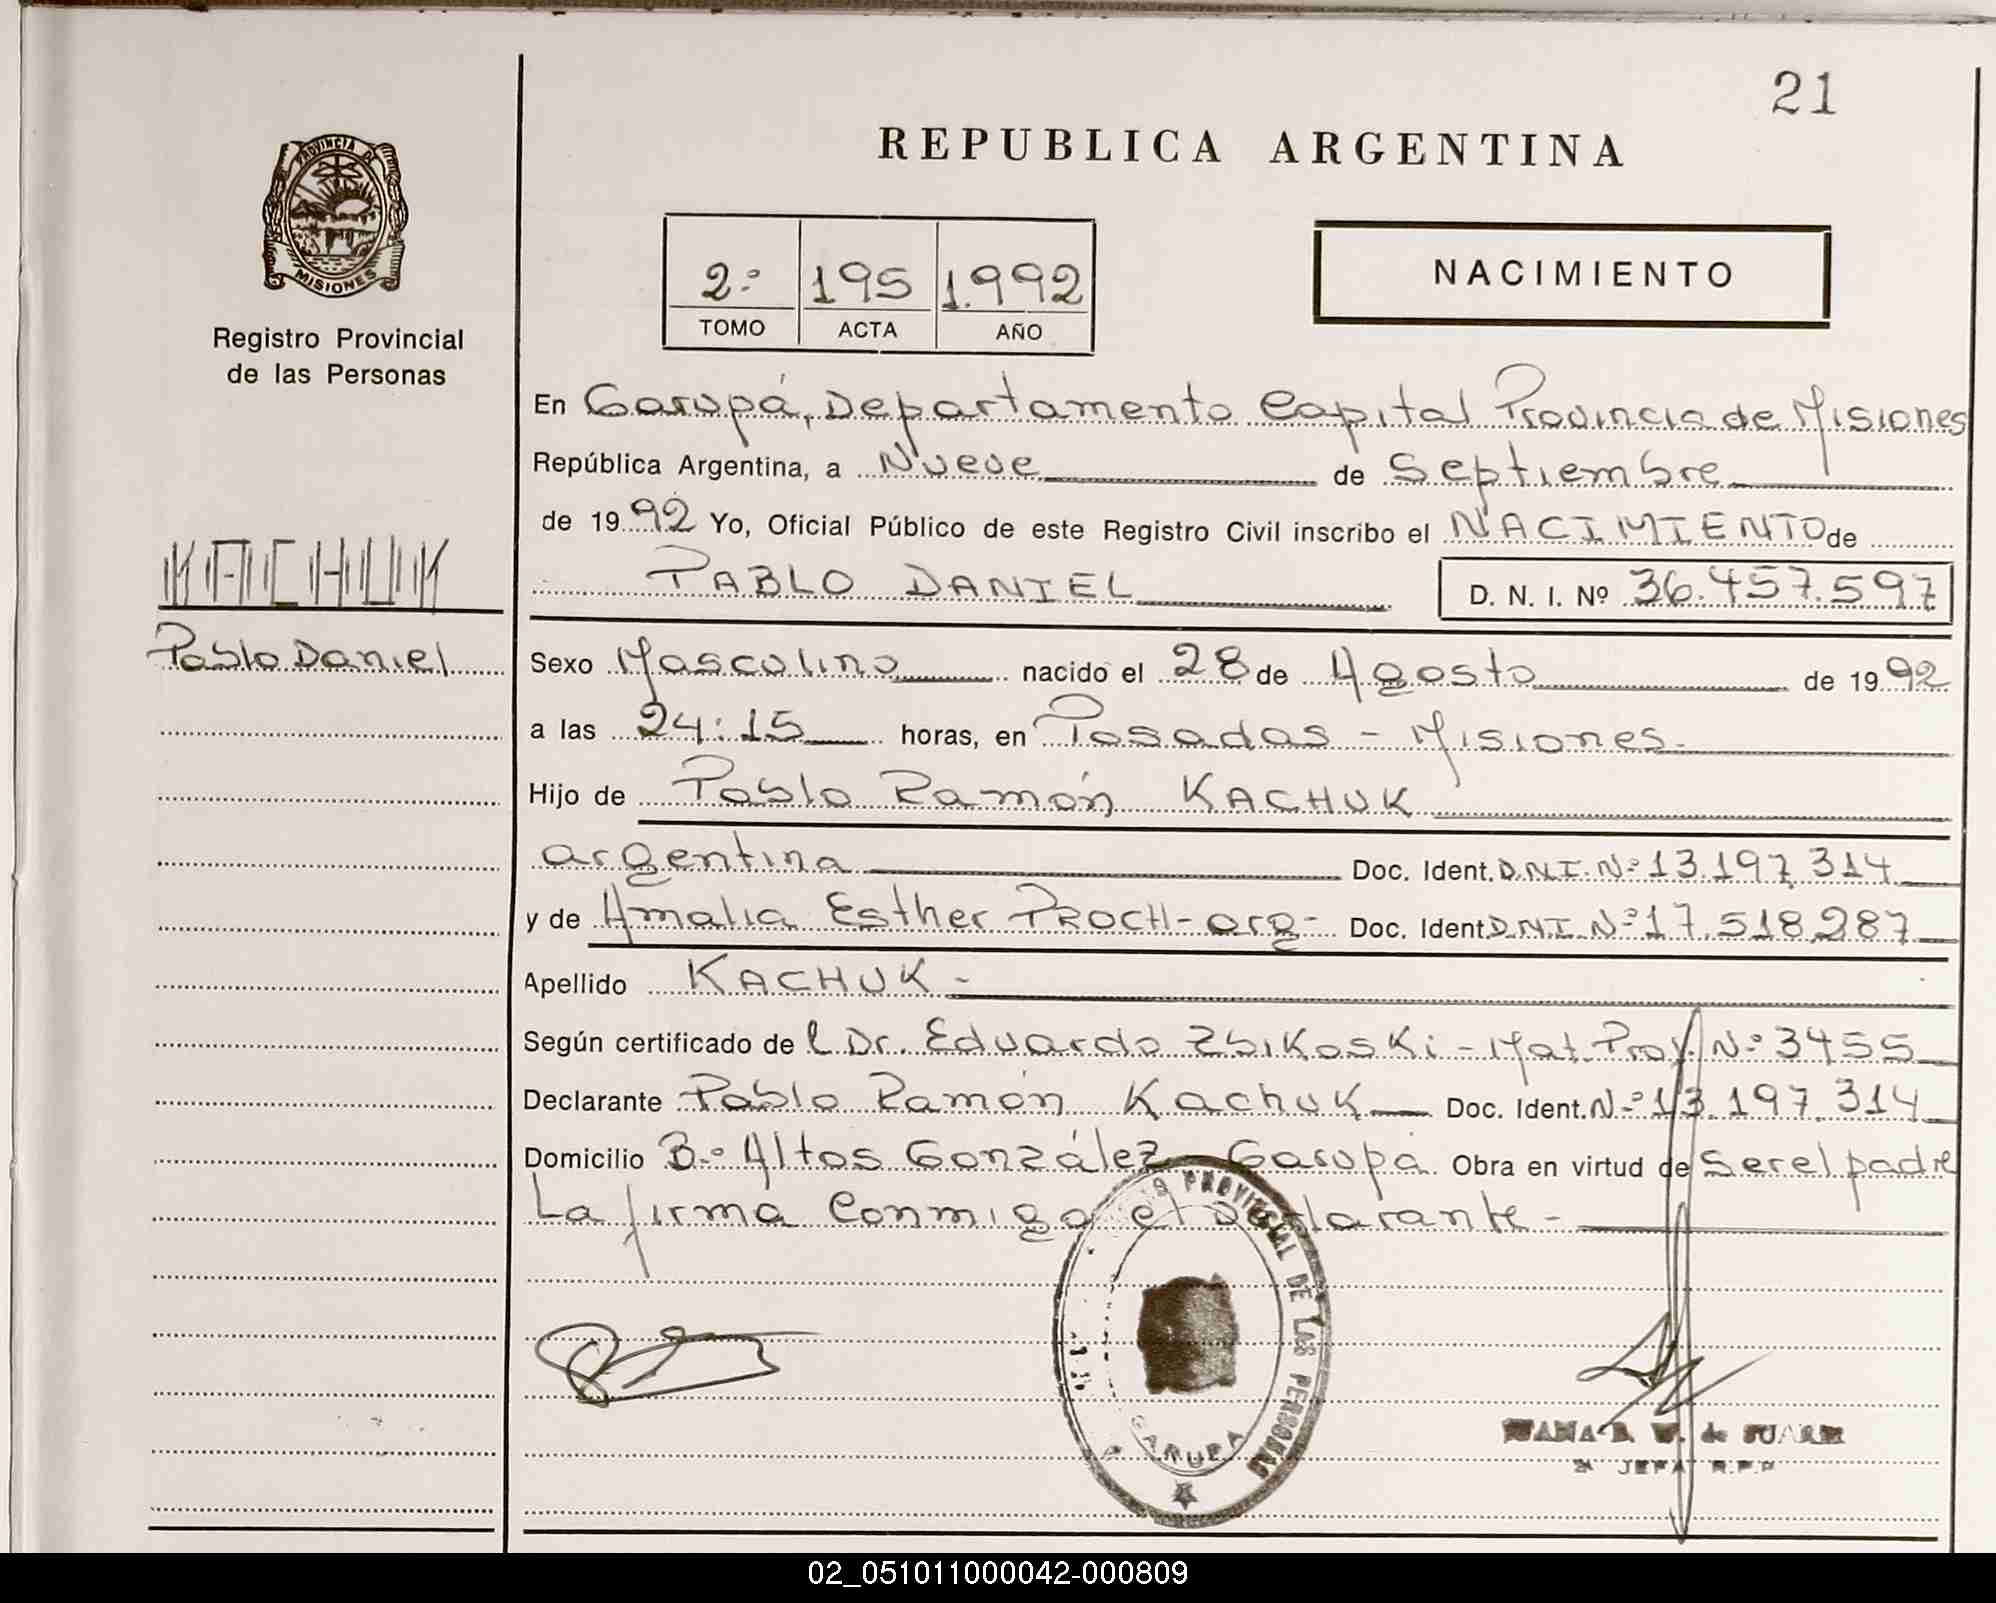 21
REPUBLICA ARGENTINA
PROVINCIA DE
MISIONES
Registro Provincial
de las Personas
2º 195 1.992
TOMO ACTA AÑO
NACIMIENTO
En Garupá, Departamento Capital Provincia de Misiones
República Argentina, a Nueve de Septiembre
de 1992 Yo, Oficial Público de este Registro Civil inscribo el NACIMIENTO de
KACHUK
PABLO DANIEL D. N. I. Nº 36.457.597
Pablo Daniel
Sexo Masculino nacido el 28 de Agosto de 1992
a las 24:15 horas, en Posadas - Misiones.
Hijo de Pablo Ramón KACHUK
argentina Doc. Ident. D.N.I. Nº 13.197.314
y de Amalia Esther PROCH - arg - Doc. Ident. D.N.I. Nº 17.518.287
Apellido KACHUK -
Según certificado de l Dr. Eduardo Zbikoski - Mat. Prov. Nº 3455
Declarante Pablo Ramón Kachuk Doc. Ident. Nº 13.197.314
Domicilio Bº Altos González - Garupá Obra en virtud de ser el padre
La firma Conmigo el Declarante -
PROVINCIAL DE LAS PERSONAS
GARUPA
de SUAREZ
JEFA R.P.P
02_051011000042-000809